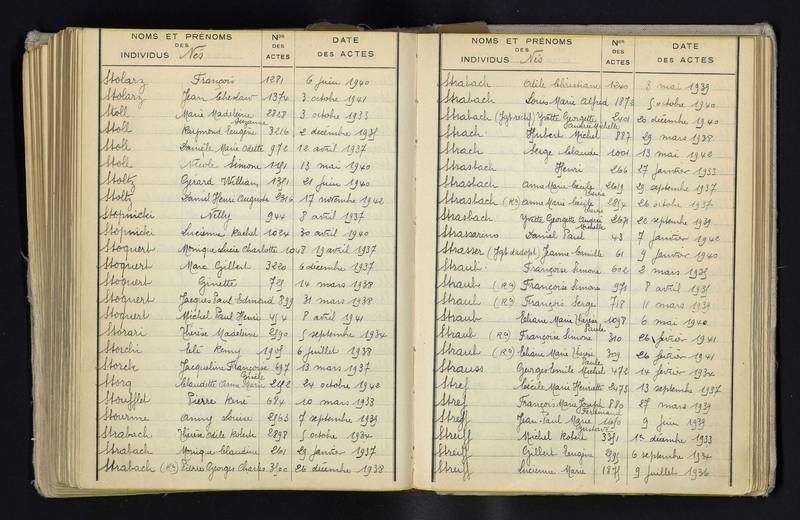 NOMS ET PRÉNOMS
DES
INDIVIDUS Nés
Nos
DES
ACTES
DATE
DES ACTES
Stolarz François 1281 6 juin 1940
Stolarz Jean Cheslaw 1374 3 octobre 1941
Stoll Marie Madeleine 2828 3 octobre 1933
Suzanne
Stoll Raymond Eugène 3216 2 décembre 1935
Stoll Danièle Marie Odette 972 12 avril 1937
Stoll Nicole Simone 1191 13 mai 1940
Stoltz Gérard William 1381 21 juin 1940
Stoltz Daniel Henri Auguste 2316 17 novembre 1942
Stopnicki Nelly 944 8 avril 1937
Stopnicki Lucienne Rachel 1024 30 avril 1940
Stoquert Monique Lucie Charlotte 1048 19 avril 1937
Stoquert Marc Gilbert 3220 6 décembre 1937
Stoquert Ginette 729 14 mars 1938
Stoquert Jacques Paul Edmond 899 31 mars 1938
Stoquert Michel Paul Henri 454 8 avril 1941
Storari Thérèse Madeleine 2590 5 septembre 1934
Storchi Remy 1905 6 juillet 1938
Storck Jacqueline Françoise 697 13 mars 1937
Gisèle
Storg Claudette Anne Marie 2192 24 octobre 1942
Stoufflet Pierre René 684 10 mars 1933
Stourme Anny Louise 2563 7 septembre 1939
Strabach Thérèse Odile Roberte 2898 5 octobre 1934
Strabach Monique Claudine 261 29 janvier 1937
Strabach (Rn) Pierre Georges Charles 3500 26 décembre 1938
NOMS ET PRÉNOMS
DES
INDIVIDUS Nés
Nos
DES
ACTES
DATE
DES ACTES
Strabach Odile Christiane 1240 3 mai 1939
Strabach Louis Marie Alfred 1872 5 octobre 1940
Strabach Yvette Georgette 2401 20 décembre 1940
Andrée Michelle
Strach Hubert Michel 887 29 mars 1938
Strach Serge Claude 1001 13 mai 1942
Strasbach Henri 266 27 janvier 1933
Strasbach Anne Marie Cécile 2619 29 septembre 1937
Strasbach (Rn) Anne Marie Cécile 2854 26 octobre 1937
Strasbach Yvette Georgette Andrée 2671 20 septembre 1939
Michelle
Strasserino Daniel Paul 43 7 janvier 1942
Strasser (Jgt d'adopt) Jeanne Camille 61 9 janvier 1940
Straub Françoise Simone 602 2 mars 1935
Straub (Rn) Françoise Simone 971 8 avril 1935
Straub (Rn) François Serge 718 11 mars 1939
Straub Eliane Marie Thérèse 1098 6 mai 1940
Paule
Straub (Rn) Françoise Simone 310 26 février 1941
Straub (Rn) Eliane Marie Thérèse 309 26 février 1941
Paule
Strauss Georges Emile Michel 472 14 février 1934
Stref Cécile Marie Henriette 2473 13 septembre 1937
Stref François Marie Joseph 880 27 mars 1939
Ferdinand
Streff Jean-Paul Marie 1650 9 juin 1939
Gustave
Streiff Michel Robert 3351 1er décembre 1933
Streiff Gilbert Eugène 2595 6 septembre 1934
Streiff Lucienne Marie 1875 9 juillet 1936